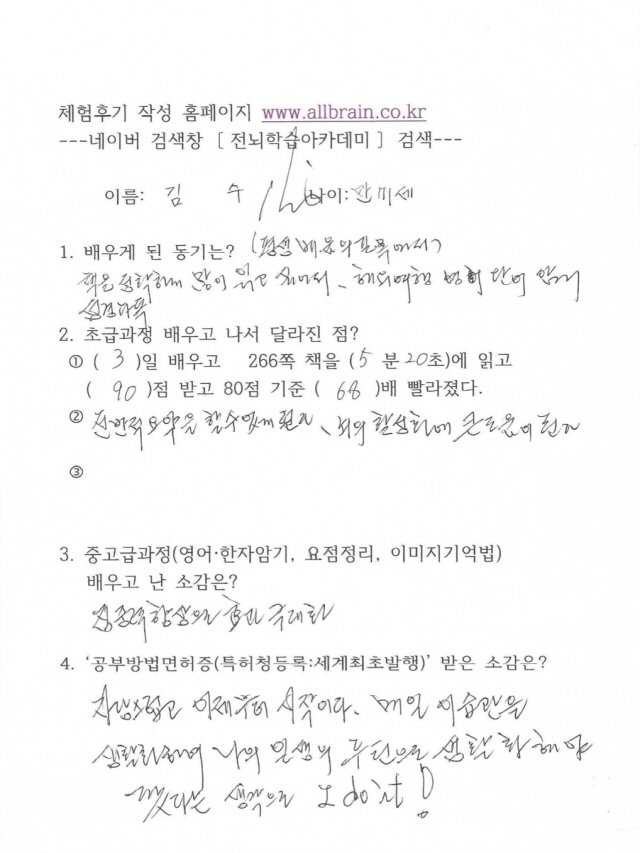 체험후기 작성 홈페이지 www.allbrain.co.kr
---네이버 검색창 [ 전뇌학습아카데미 ] 검색---
이름: 김 수 나이: 만 세
1. 배우게 된 동기는? (평생 배움의 길목에서)
책을 정확하게 많이 읽고 싶어서, 해외여행 영어 단어 암기
2. 초급과정 배우고 나서 달라진 점?
① ( 3 )일 배우고 266쪽 책을 (5 분20초)에 읽고
( 90 )점 받고 80점 기준 ( 68 )배 빨라졌다.
② 전반적 요약을 할수있게 된점, 뇌의 활성화에 큰도움이 된점
③
3. 중고급과정(영어·한자암기, 요점정리, 이미지기억법)
배우고 난 소감은?
집중력향상으로 효과 극대화
4. '공부방법면허증(특허청등록:세계최초발행)' 받은 소감은?
자랑스럽고 이제부터 시작이다. 매일 이습관을
생활화하여 나의 인생의 생활화해야
겠다는 생각으로 I do it!